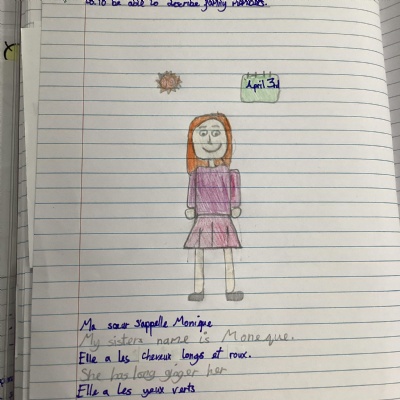 to be able to describe family members.
April 3rd
Ma sœur s'appelle Monique
My sisters name is Moneque.
Elle a les cheveux longs et roux.
She has long ginger her
Elle a les yeux verts